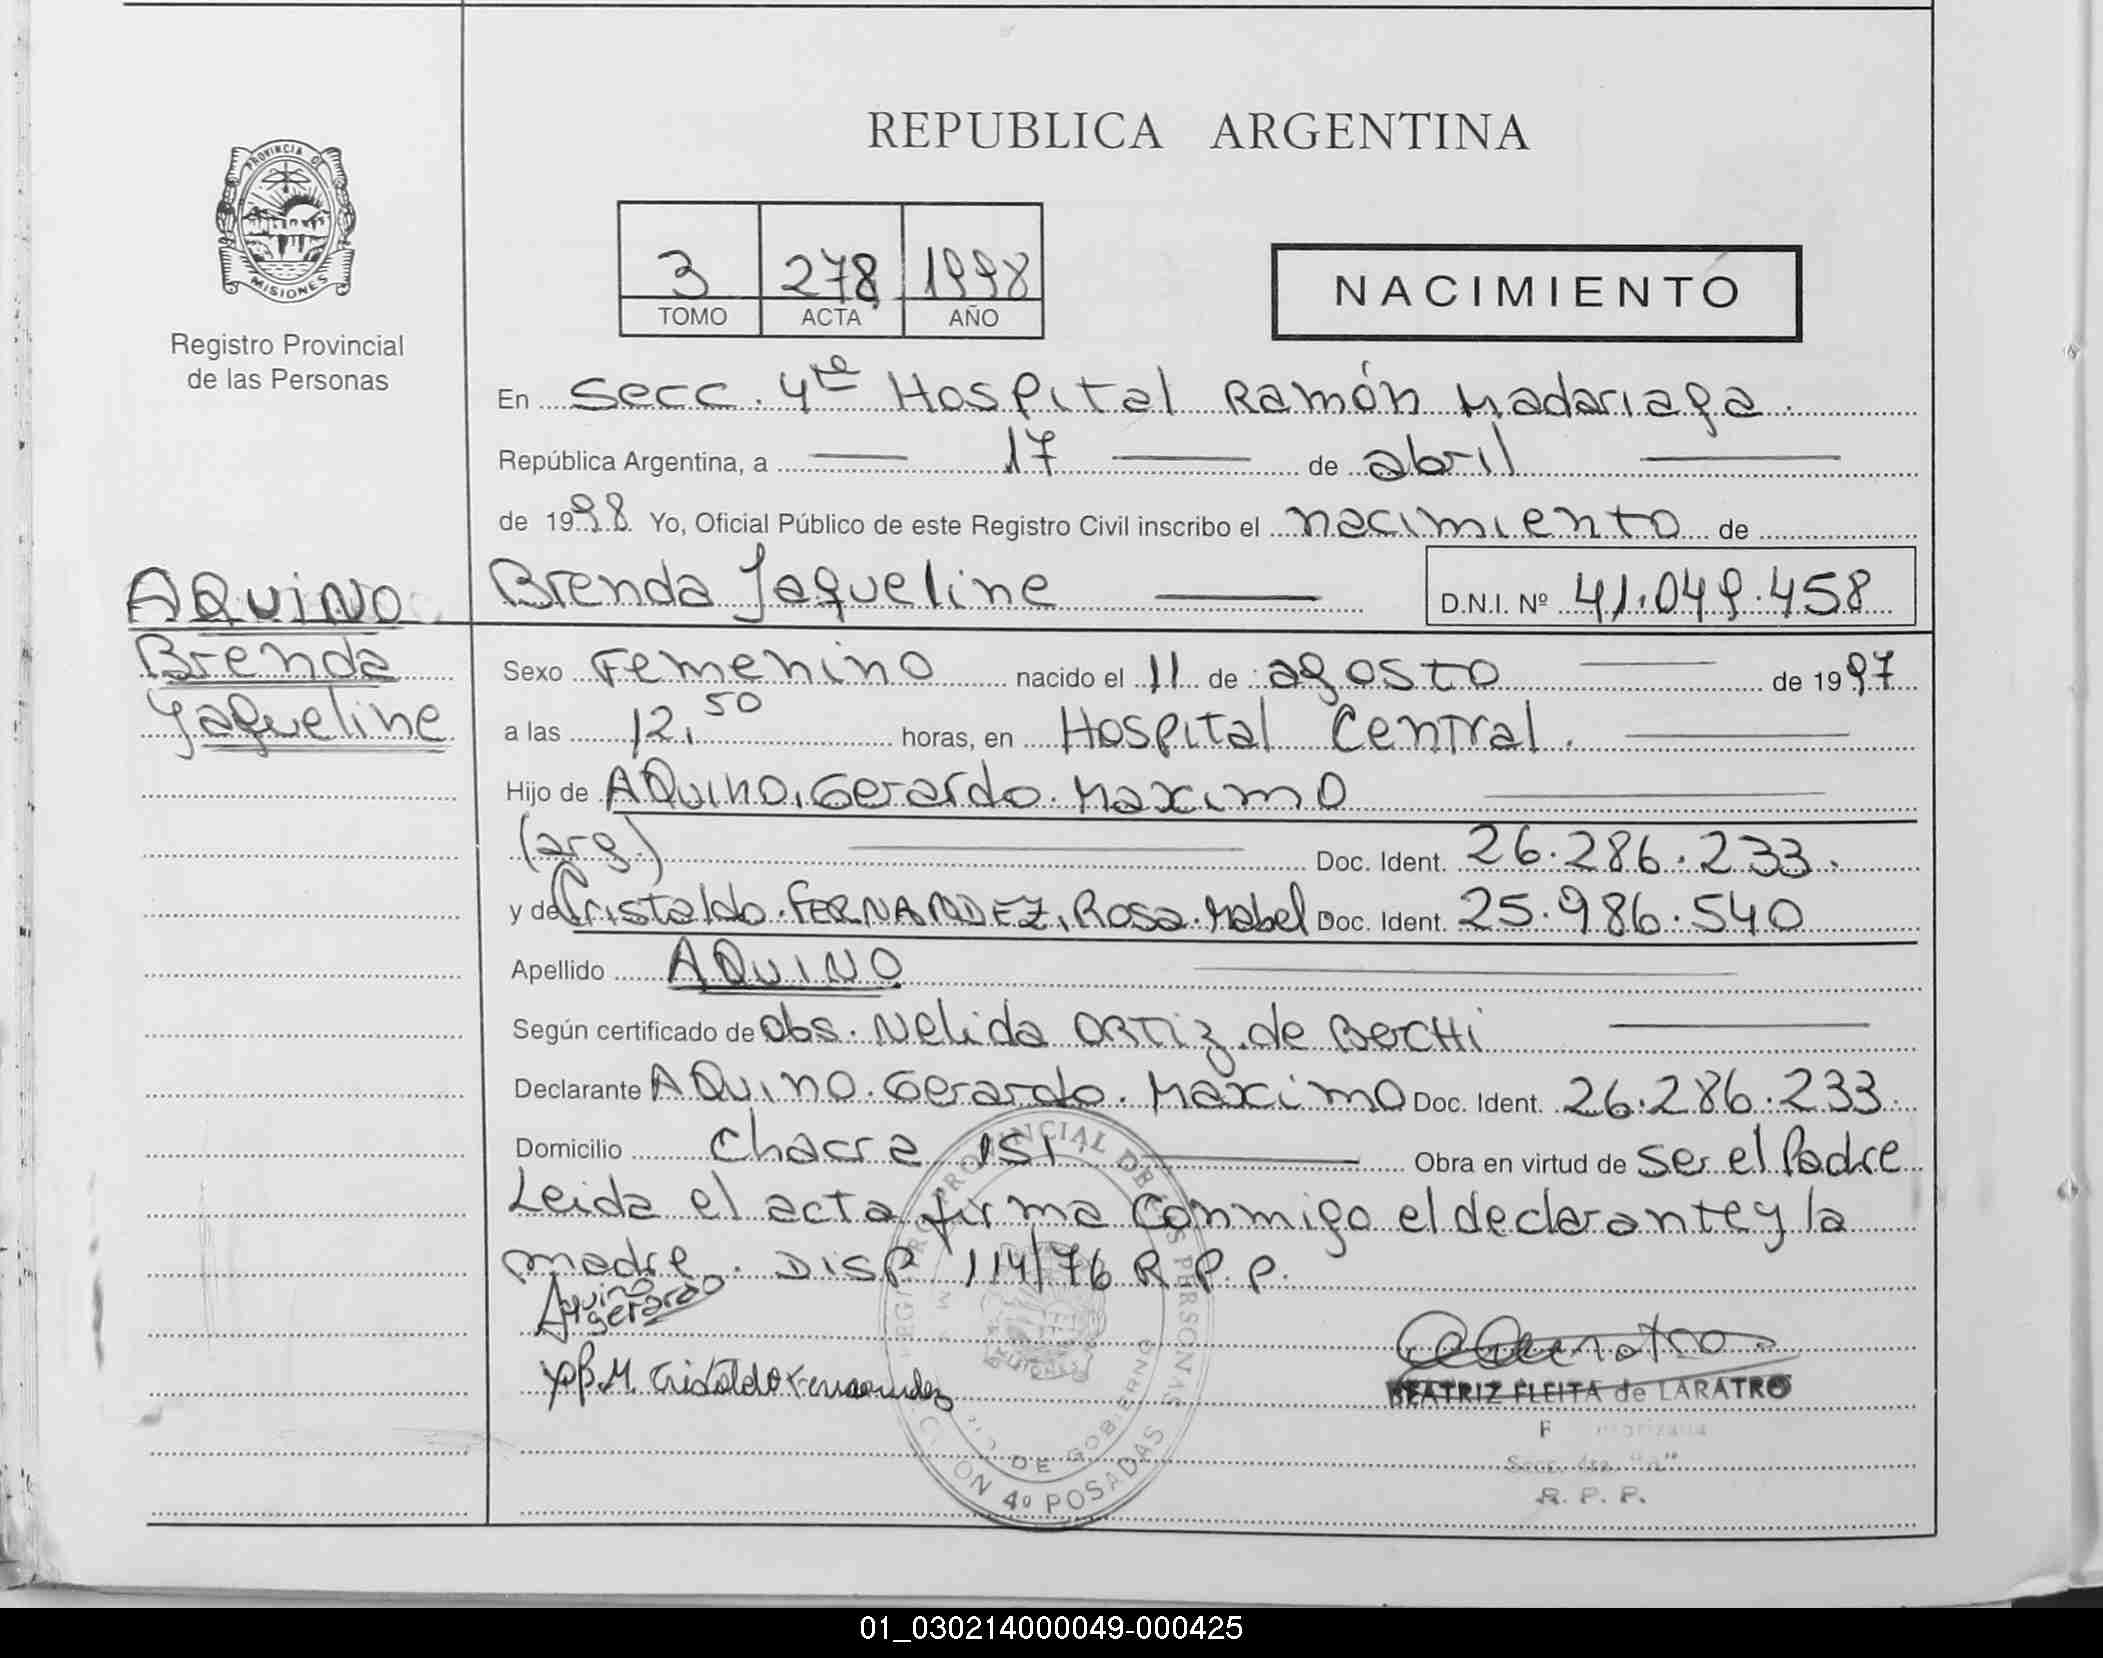 REPUBLICA ARGENTINA
PROVINCIA DE
MISIONES
Registro Provincial
de las Personas
3 278 1998
TOMO ACTA AÑO
NACIMIENTO
En Secc. 4ta Hospital Ramón Madariaga.
República Argentina, a 17 de abril
de 1998. Yo, Oficial Público de este Registro Civil inscribo el nacimiento de
Brenda Jaqueline D.N.I. Nº 41.049.458
AQUINO
Brenda
Jaqueline
Sexo Femenino nacido el 11 de agosto de 1997
a las 12,50 horas, en Hospital Central.
Hijo de AQuino, Gerardo Maximo
(arg.) Doc. Ident. 26.286.233.
y de Cristaldo FERNANDEZ, Rosa Mabel Doc. Ident. 25.986.540
Apellido AQUINO
Según certificado de Obs. Nelida ORTiz de BecCHi
Declarante AQuino Gerardo Maximo Doc. Ident. 26.286.233
Domicilio Chacra 151 Obra en virtud de ser el Padre
Leida el acta firma conmigo el declarante y la
madre. DISP 114/76 R.P.P.
Aquino
gerardo
R.M. Cristaldo Fernandez
BEATRIZ FLEITA de LARATRO
Secc. 4ta. "a"
R. P. P.
REGISTRO PROVINCIAL DE LAS PERSONAS
DE GOBIERNO
MISIONES
SECCION 4º POSADAS
01_030214000049-000425